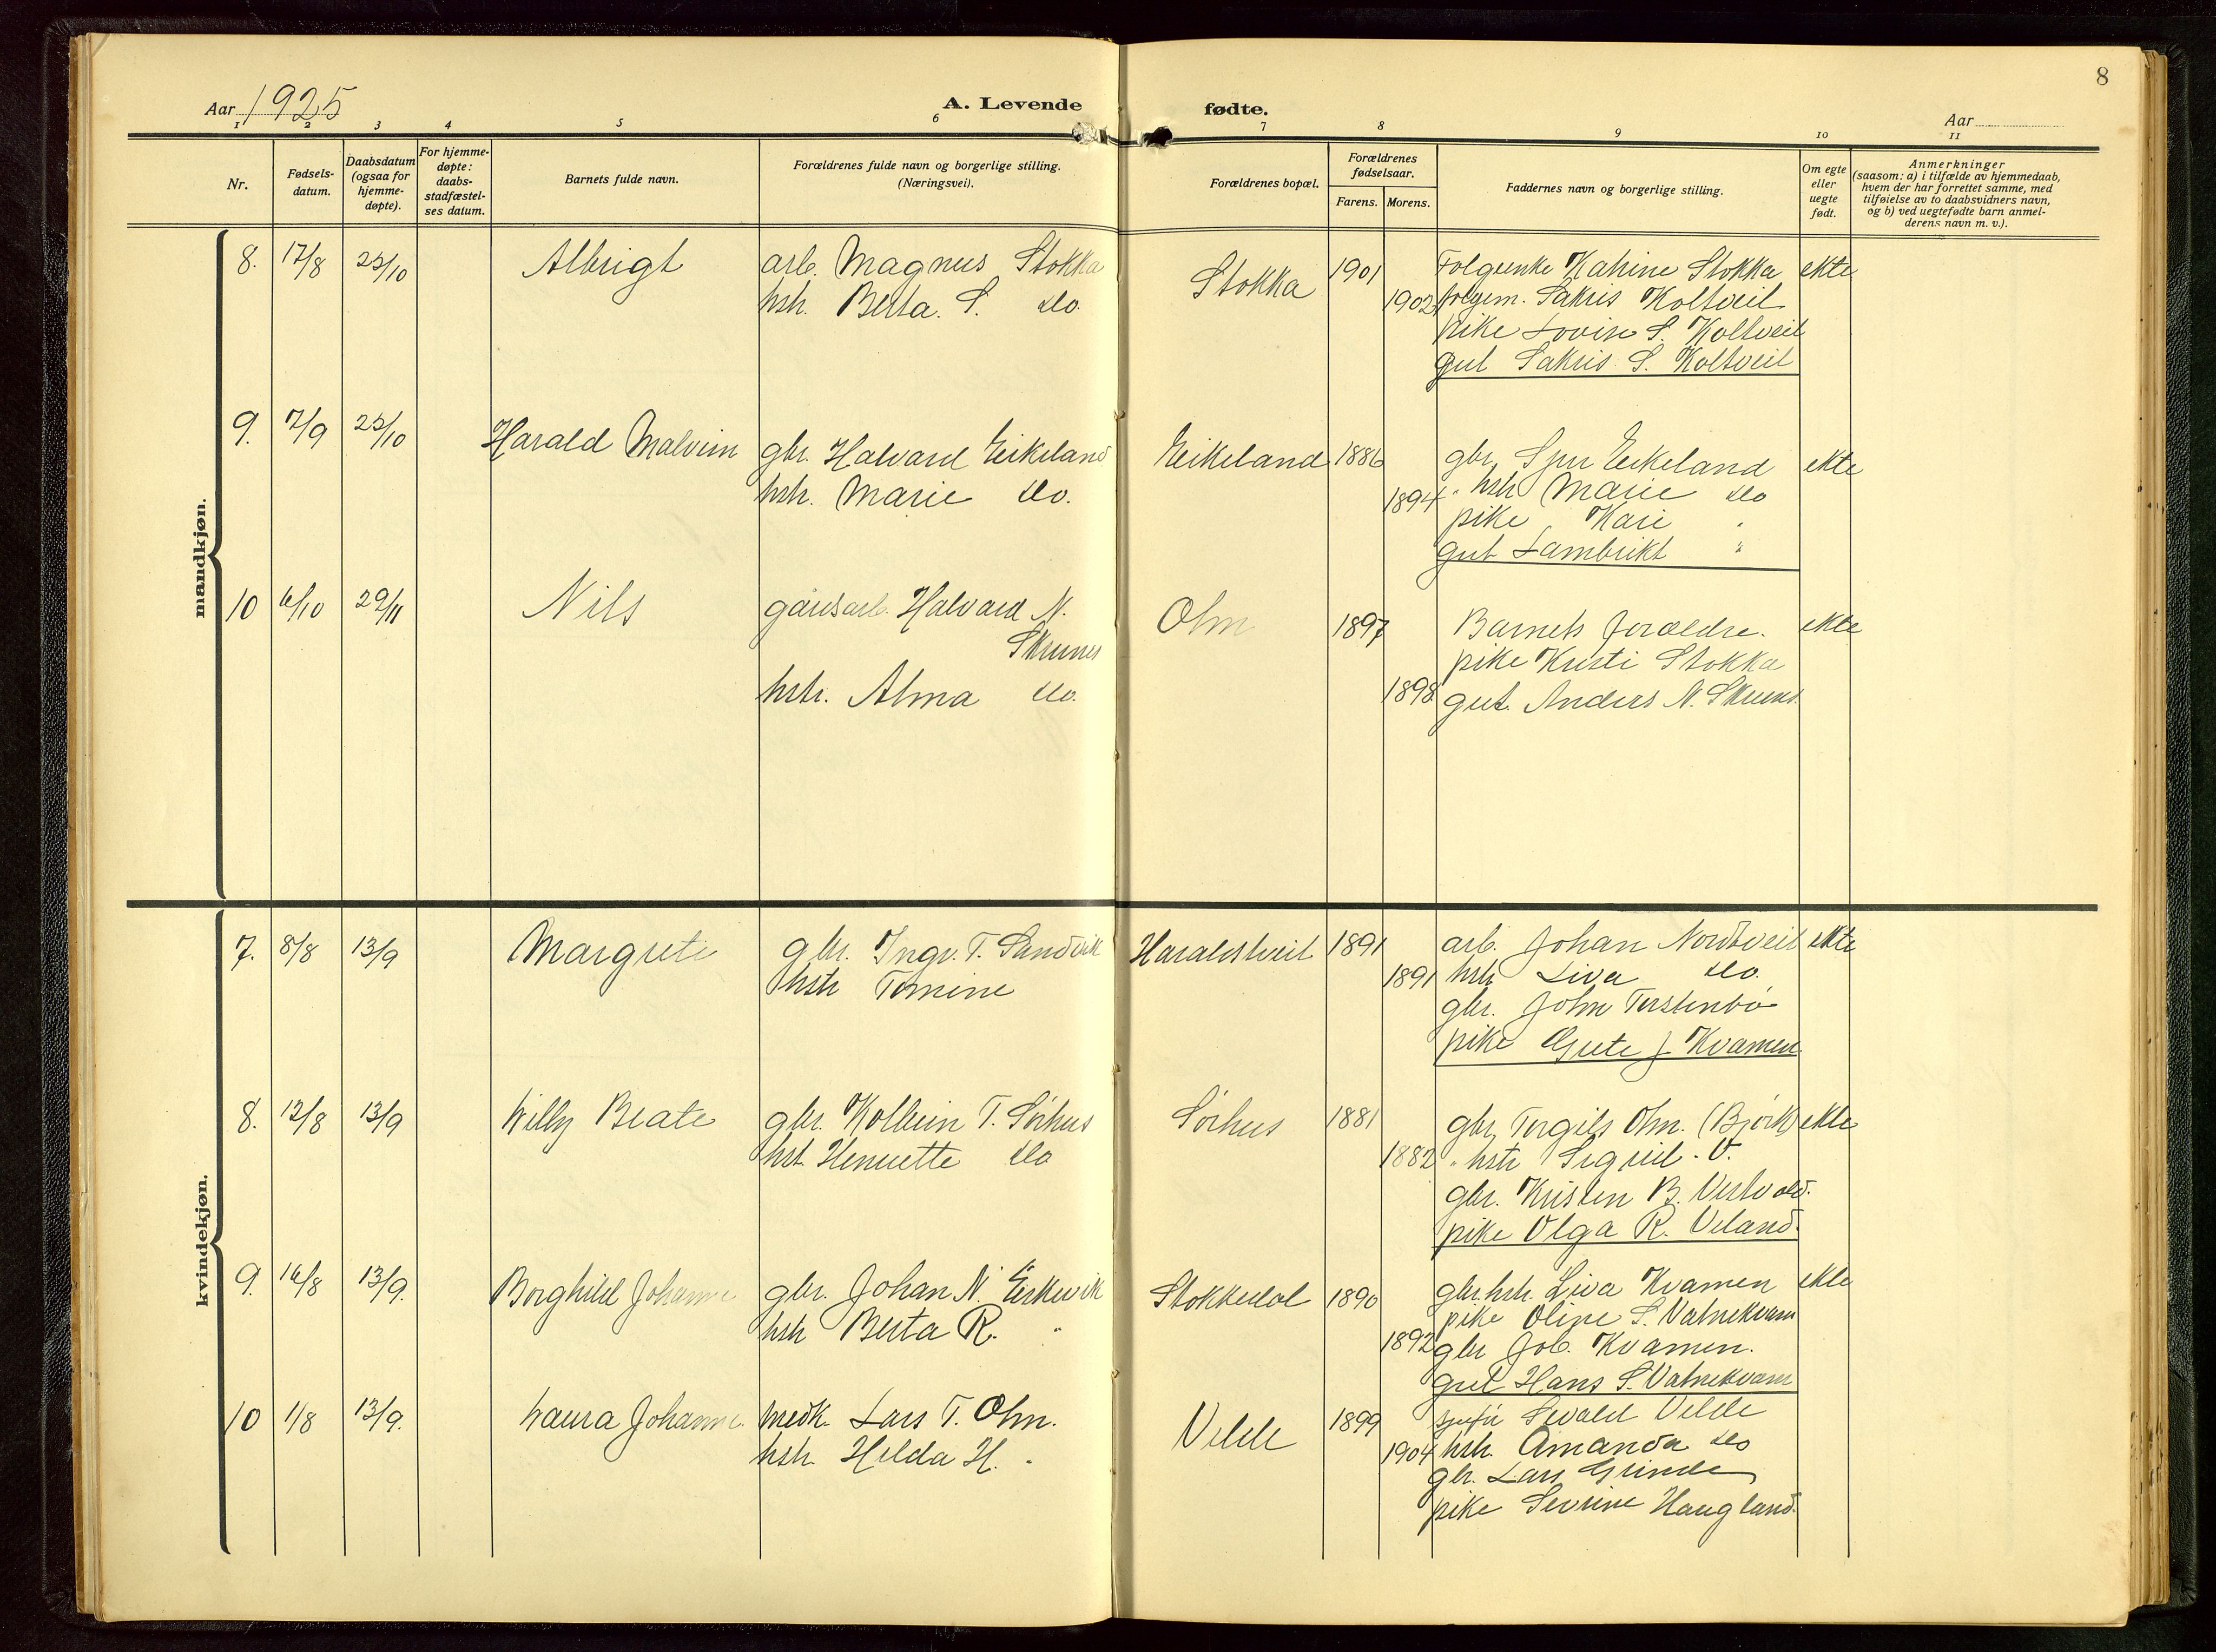 8
Aar 1925
A. Levende fødte.
Aar
1 2 3 4 5 6 7 8 9 10 11
Nr.
Fødsels-
datum.
Daabsdatum
(ogsaa for
hjemme-
døpte).
For hjemme-
døpte:
daabs-
stadfæstel-
ses datum.
Barnets fulde navn.
Forældrenes fulde navn og borgerlige stilling.
(Næringsvei).
Forældrenes bopæl.
Forældrenes
fødselsaar.
Farens. Morens.
Faddernes navn og borgerlige stilling.
Om egte
eller
uegte
født.
Anmerkninger
(saasom: a) i tilfælde av hjemmedaab,
hvem der har forrettet samme, med
tilføielse av to daabsvidners navn,
og b) ved uegtefødte barn anmel-
derens navn m. v.).
mandkjøn.
8. 17/8 25/10 Albrigt
arb. Magnus Stokka
hstr. Berta. S. do.
Stokka 1901
1902
Folgeenke Katrine Stokka ekte
folgem. Sakris Koltveit
pike Lovise S. Koltveit
gut Sakris S. Koltveit
9. 7/9 25/10 Harald Malvin
gbr. Halvard Eikeland
hstr. Marie do.
Eikeland 1886
1894
gbr. Eikeland ekte
" hstr Marie do
pike Kari "
gut Lambrikt "
10 6/10 29/11 Nils
gårdsarb. Halvard N.
Skrunes
hstr. Alma do.
Olm 1897
1898
Barnets forældre. ekte
pike Kristi Stokka
gut. Anders N. Skrunes.
kvindekjøn.
7. 8/8 13/9 Margrete
gbr. Ingv. T. Sandvik
hstr Tomine
Haraldstveit 1891
1891
arb. Johan Nordtveit ekte
hstr Liva do.
gbr. John Terstenbø
pike Grete J Kvamen
8. 12/8 13/9 Willy Beate
gbr. Kolbein T. Sörhus
hst. Henriette do
Sörhus 1881
1882
gbr. Torgils Olm. (Bjørk) ekte
" hstr Sigrid. O.
gbr. Kristen B. Vestvold.
pike Olga R. Veland.
9. 16/8 13/9. Borghild Johanne
gbr. Johan N. Eirkevik
hstr Berta R. "
Stokkedal 1890
1892
gbr.hstr. Liva Kvamen ekte
pike Oline S. Vatnekvam
gbr Job. Kvamen.
gut Hans S. Vatnekvam
10 1/8 13/9. Laura Johanne.
medk. Lars T. Olm.
hstr. Helda H. "
Velde 1899
1904
Sevald Velde
hstr. Amanda do
gbr. Lars Grinde
pike Sevrine Haugland.